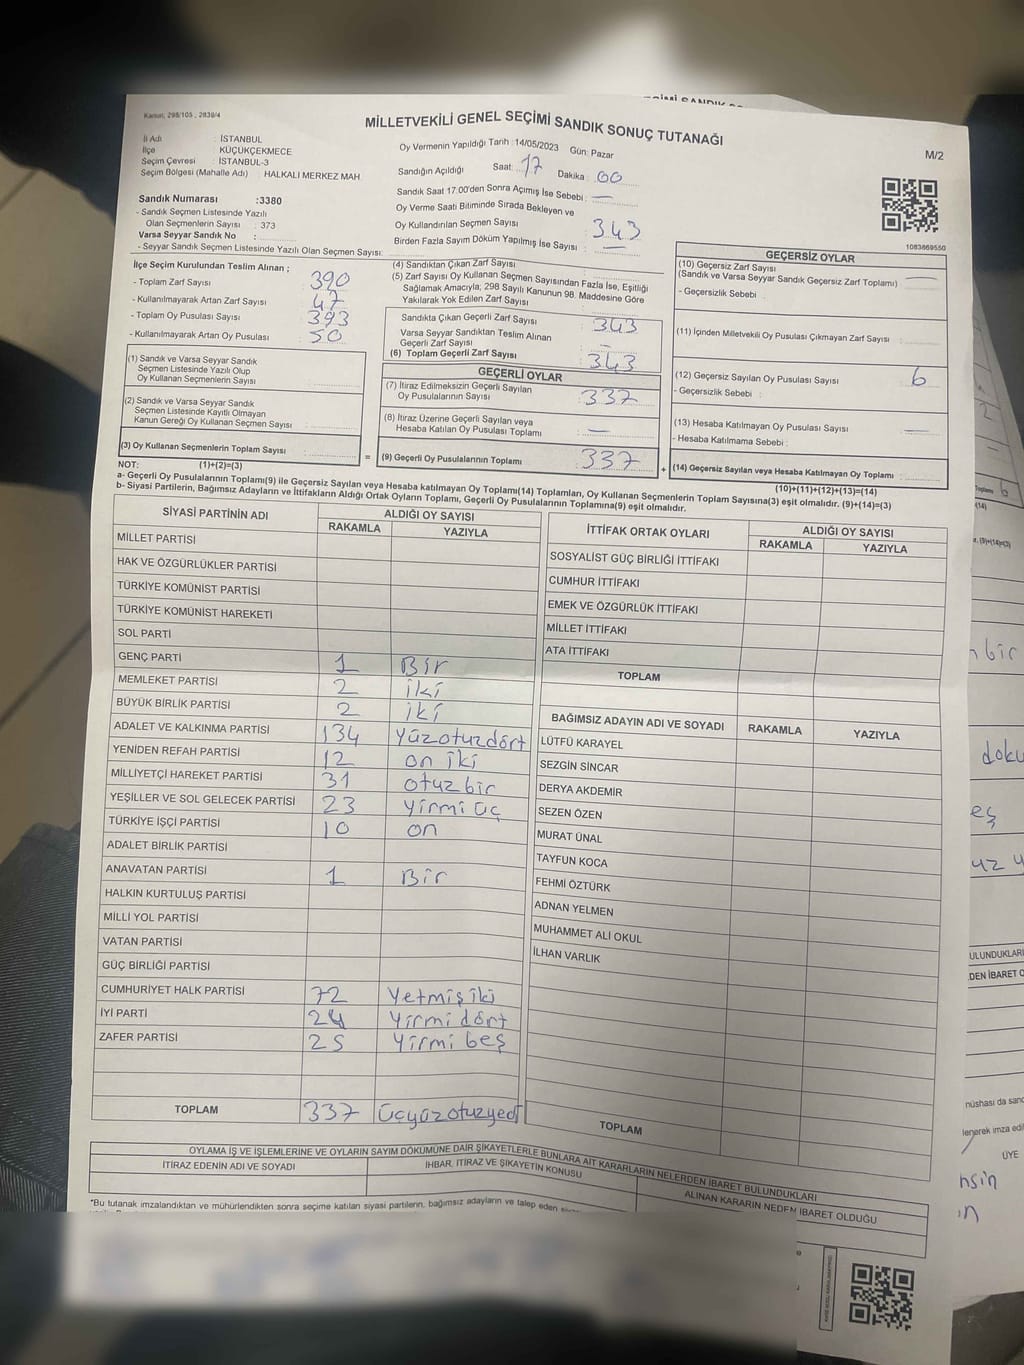 Kanun; 298/105 , 2839/4
MİLLETVEKİLİ GENEL SEÇİMİ SANDIK SONUÇ TUTANAĞI
M/2
İli Adı : İSTANBUL
İlçe : KÜÇÜKÇEKMECE
Seçim Çevresi : İSTANBUL-3
Seçim Bölgesi (Mahalle Adı) : HALKALI MERKEZ MAH
Sandık Numarası :3380
- Sandık Seçmen Listesinde Yazılı
Olan Seçmenlerin Sayısı : 373
Varsa Seyyar Sandık No :
- Seyyar Sandık Seçmen Listesinde Yazılı Olan Seçmen Sayısı:
Oy Vermenin Yapıldığı Tarih :14/05/2023 Gün: Pazar
Sandığın Açıldığı Saat: 17 Dakika : 00
Sandık Saat 17:00'den Sonra Açımış İse Sebebi : —
Oy Verme Saati Bitiminde Sırada Bekleyen ve
Oy Kullandırılan Seçmen Sayısı : 343
Birden Fazla Sayım Döküm Yapılmış İse Sayısı : —
1083669550
İlçe Seçim Kurulundan Teslim Alınan ;
- Toplam Zarf Sayısı : 390
- Kullanılmayarak Artan Zarf Sayısı : 47
- Toplam Oy Pusulası Sayısı : 393
- Kullanılmayarak Artan Oy Pusulası : 50
(1) Sandık ve Varsa Seyyar Sandık
Seçmen Listesinde Yazılı Olup
Oy Kullanan Seçmenlerin Sayısı :
(2) Sandık ve Varsa Seyyar Sandık
Seçmen Listesinde Kayıtlı Olmayan
Kanun Gereği Oy Kullanan Seçmen Sayısı :
(3) Oy Kullanan Seçmenlerin Toplam Sayısı :
NOT: (1)+(2)=(3)
(4) Sandıktan Çıkan Zarf Sayısı :
(5) Zarf Sayısı Oy Kullanan Seçmen Sayısından Fazla İse, Eşitliği
Sağlamak Amacıyla; 298 Sayılı Kanunun 98. Maddesine Göre
Yakılarak Yok Edilen Zarf Sayısı :
Sandıkta Çıkan Geçerli Zarf Sayısı : 343
Varsa Seyyar Sandıktan Teslim Alınan
Geçerli Zarf Sayısı : —
(6) Toplam Geçerli Zarf Sayısı : 343
GEÇERLİ OYLAR
(7) İtiraz Edilmeksizin Geçerli Sayılan
Oy Pusulalarının Sayısı : 337
(8) İtiraz Üzerine Geçerli Sayılan veya
Hesaba Katılan Oy Pusulası Toplamı : —
= (9) Geçerli Oy Pusulalarının Toplamı : 337 +
GEÇERSİZ OYLAR
(10) Geçersiz Zarf Sayısı : —
(Sandık ve Varsa Seyyar Sandık Geçersiz Zarf Toplamı)
- Geçersizlik Sebebi :
(11) İçinden Milletvekili Oy Pusulası Çıkmayan Zarf Sayısı :
(12) Geçersiz Sayılan Oy Pusulası Sayısı : 6
- Geçersizlik Sebebi :
(13) Hesaba Katılmayan Oy Pusulası Sayısı : —
- Hesaba Katılmama Sebebi :
(14) Geçersiz Sayılan veya Hesaba Katılmayan Oy Toplamı :
(10)+(11)+(12)+(13)=(14)
a- Geçerli Oy Pusulalarının Toplamı(9) ile Geçersiz Sayılan veya Hesaba katılmayan Oy Toplamı(14) Toplamları, Oy Kullanan Seçmenlerin Toplam Sayısına(3) eşit olmalıdır. (9)+(14)=(3)
b- Siyasi Partilerin, Bağımsız Adayların ve İttifakların Aldığı Ortak Oyların Toplamı, Geçerli Oy Pusulalarının Toplamına(9) eşit olmalıdır.
SİYASİ PARTİNİN ADI ALDIĞI OY SAYISI
RAKAMLA YAZIYLA
MİLLET PARTİSİ
HAK VE ÖZGÜRLÜKLER PARTİSİ
TÜRKİYE KOMÜNİST PARTİSİ
TÜRKİYE KOMÜNİST HAREKETİ
SOL PARTİ
GENÇ PARTİ 1 Bir
MEMLEKET PARTİSİ 2 iki
BÜYÜK BİRLİK PARTİSİ 2 iki
ADALET VE KALKINMA PARTİSİ 134 Yüzotuzdört
YENİDEN REFAH PARTİSİ 12 on iki
MİLLİYETÇİ HAREKET PARTİSİ 31 otuzbir
YEŞİLLER VE SOL GELECEK PARTİSİ 23 Yirmi üç
TÜRKİYE İŞÇİ PARTİSİ 10 on
ADALET BİRLİK PARTİSİ
ANAVATAN PARTİSİ 1 Bir
HALKIN KURTULUŞ PARTİSİ
MİLLİ YOL PARTİSİ
VATAN PARTİSİ
GÜÇ BİRLİĞİ PARTİSİ
CUMHURİYET HALK PARTİSİ 72 Yetmiş iki
İYİ PARTİ 24 Yirmi dört
ZAFER PARTİSİ 25 Yirmi beş
TOPLAM 337 Üçyüzotuzyedi
İTTİFAK ORTAK OYLARI ALDIĞI OY SAYISI
RAKAMLA YAZIYLA
SOSYALİST GÜÇ BİRLİĞİ İTTİFAKI
CUMHUR İTTİFAKI
EMEK VE ÖZGÜRLÜK İTTİFAKI
MİLLET İTTİFAKI
ATA İTTİFAKI
TOPLAM
BAĞIMSIZ ADAYIN ADI VE SOYADI RAKAMLA YAZIYLA
LÜTFÜ KARAYEL
SEZGİN SİNCAR
DERYA AKDEMİR
SEZEN ÖZEN
MURAT ÜNAL
TAYFUN KOCA
FEHMİ ÖZTÜRK
ADNAN YELMEN
MUHAMMET ALİ OKUL
İLHAN VARLIK
TOPLAM
OYLAMA İŞ VE İŞLEMLERİNE VE OYLARIN SAYIM DÖKÜMÜNE DAİR ŞİKAYETLERLE BUNLARA AİT KARARLARIN NELERDEN İBARET BULUNDUKLARI
İTİRAZ EDENİN ADI VE SOYADI İHBAR, İTİRAZ VE ŞİKAYETİN KONUSU ALINAN KARARIN NEDEN İBARET OLDUĞU
*Bu tutanak imzalandıktan ve mühürlendikten sonra seçime katılan siyasi partilerin, bağımsız adayların ve talep eden